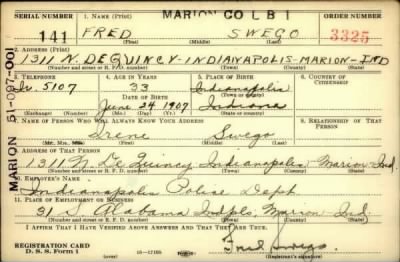 MARION CO L B 1
SERIAL NUMBER 1. NAME (Print) ORDER NUMBER
141 FRED SWEGO 3325
(First) (Middle) (Last)
2. ADDRESS (Print)
1311 N. DEQUINCY-INDIANAPOLIS-MARION-IND
(Number and street or R. F. D. number) (Town) (County) (State)
3. TELEPHONE 4. AGE IN YEARS 5. PLACE OF BIRTH 6. COUNTRY OF CITIZENSHIP
Iv. 5107 33 Indianapolis
DATE OF BIRTH
June 24 1907 Indiana
(Exchange) (Number) (Mo.) (Day) (Yr.) (State or country)
7. NAME OF PERSON WHO WILL ALWAYS KNOW YOUR ADDRESS 8. RELATIONSHIP OF THAT PERSON
Irene Swego
(Mr., Mrs., Miss) (First) (Middle) (Last)
9. ADDRESS OF THAT PERSON
1311 N. De Quincy Indianapolis Marion Ind.
(Number and street or R. F. D. number) (Town) (County) (State)
10. EMPLOYER'S NAME
Indianapolis Police Dept
11. PLACE OF EMPLOYMENT OR BUSINESS
31 S. Alabama Indpls. Marion Ind.
(Number and street or R. F. D. number) (Town) (County) (State)
I AFFIRM THAT I HAVE VERIFIED ABOVE ANSWERS AND THAT THEY ARE TRUE.
REGISTRATION CARD
D. S. S. Form 1
Fred Swego
MARION 51-097-001